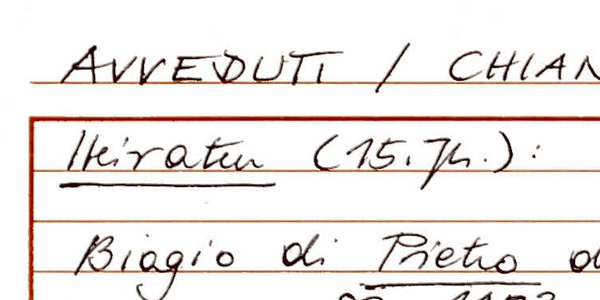 AVVEDUTI / CHIAN
Heiraten (15. Jh.):
Biagio di Pietro d